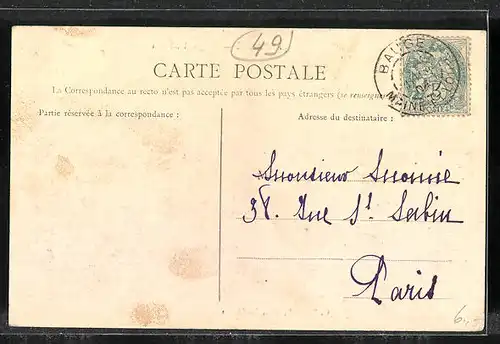 49
CARTE POSTALE
La Correspondance au recto n'est pas acceptée par tous les pays étrangers (se renseigner
Partie réservée à la correspondance :
Adresse du destinataire :
BAUGE
Monsieur
38. Rue St. Sabin
Paris